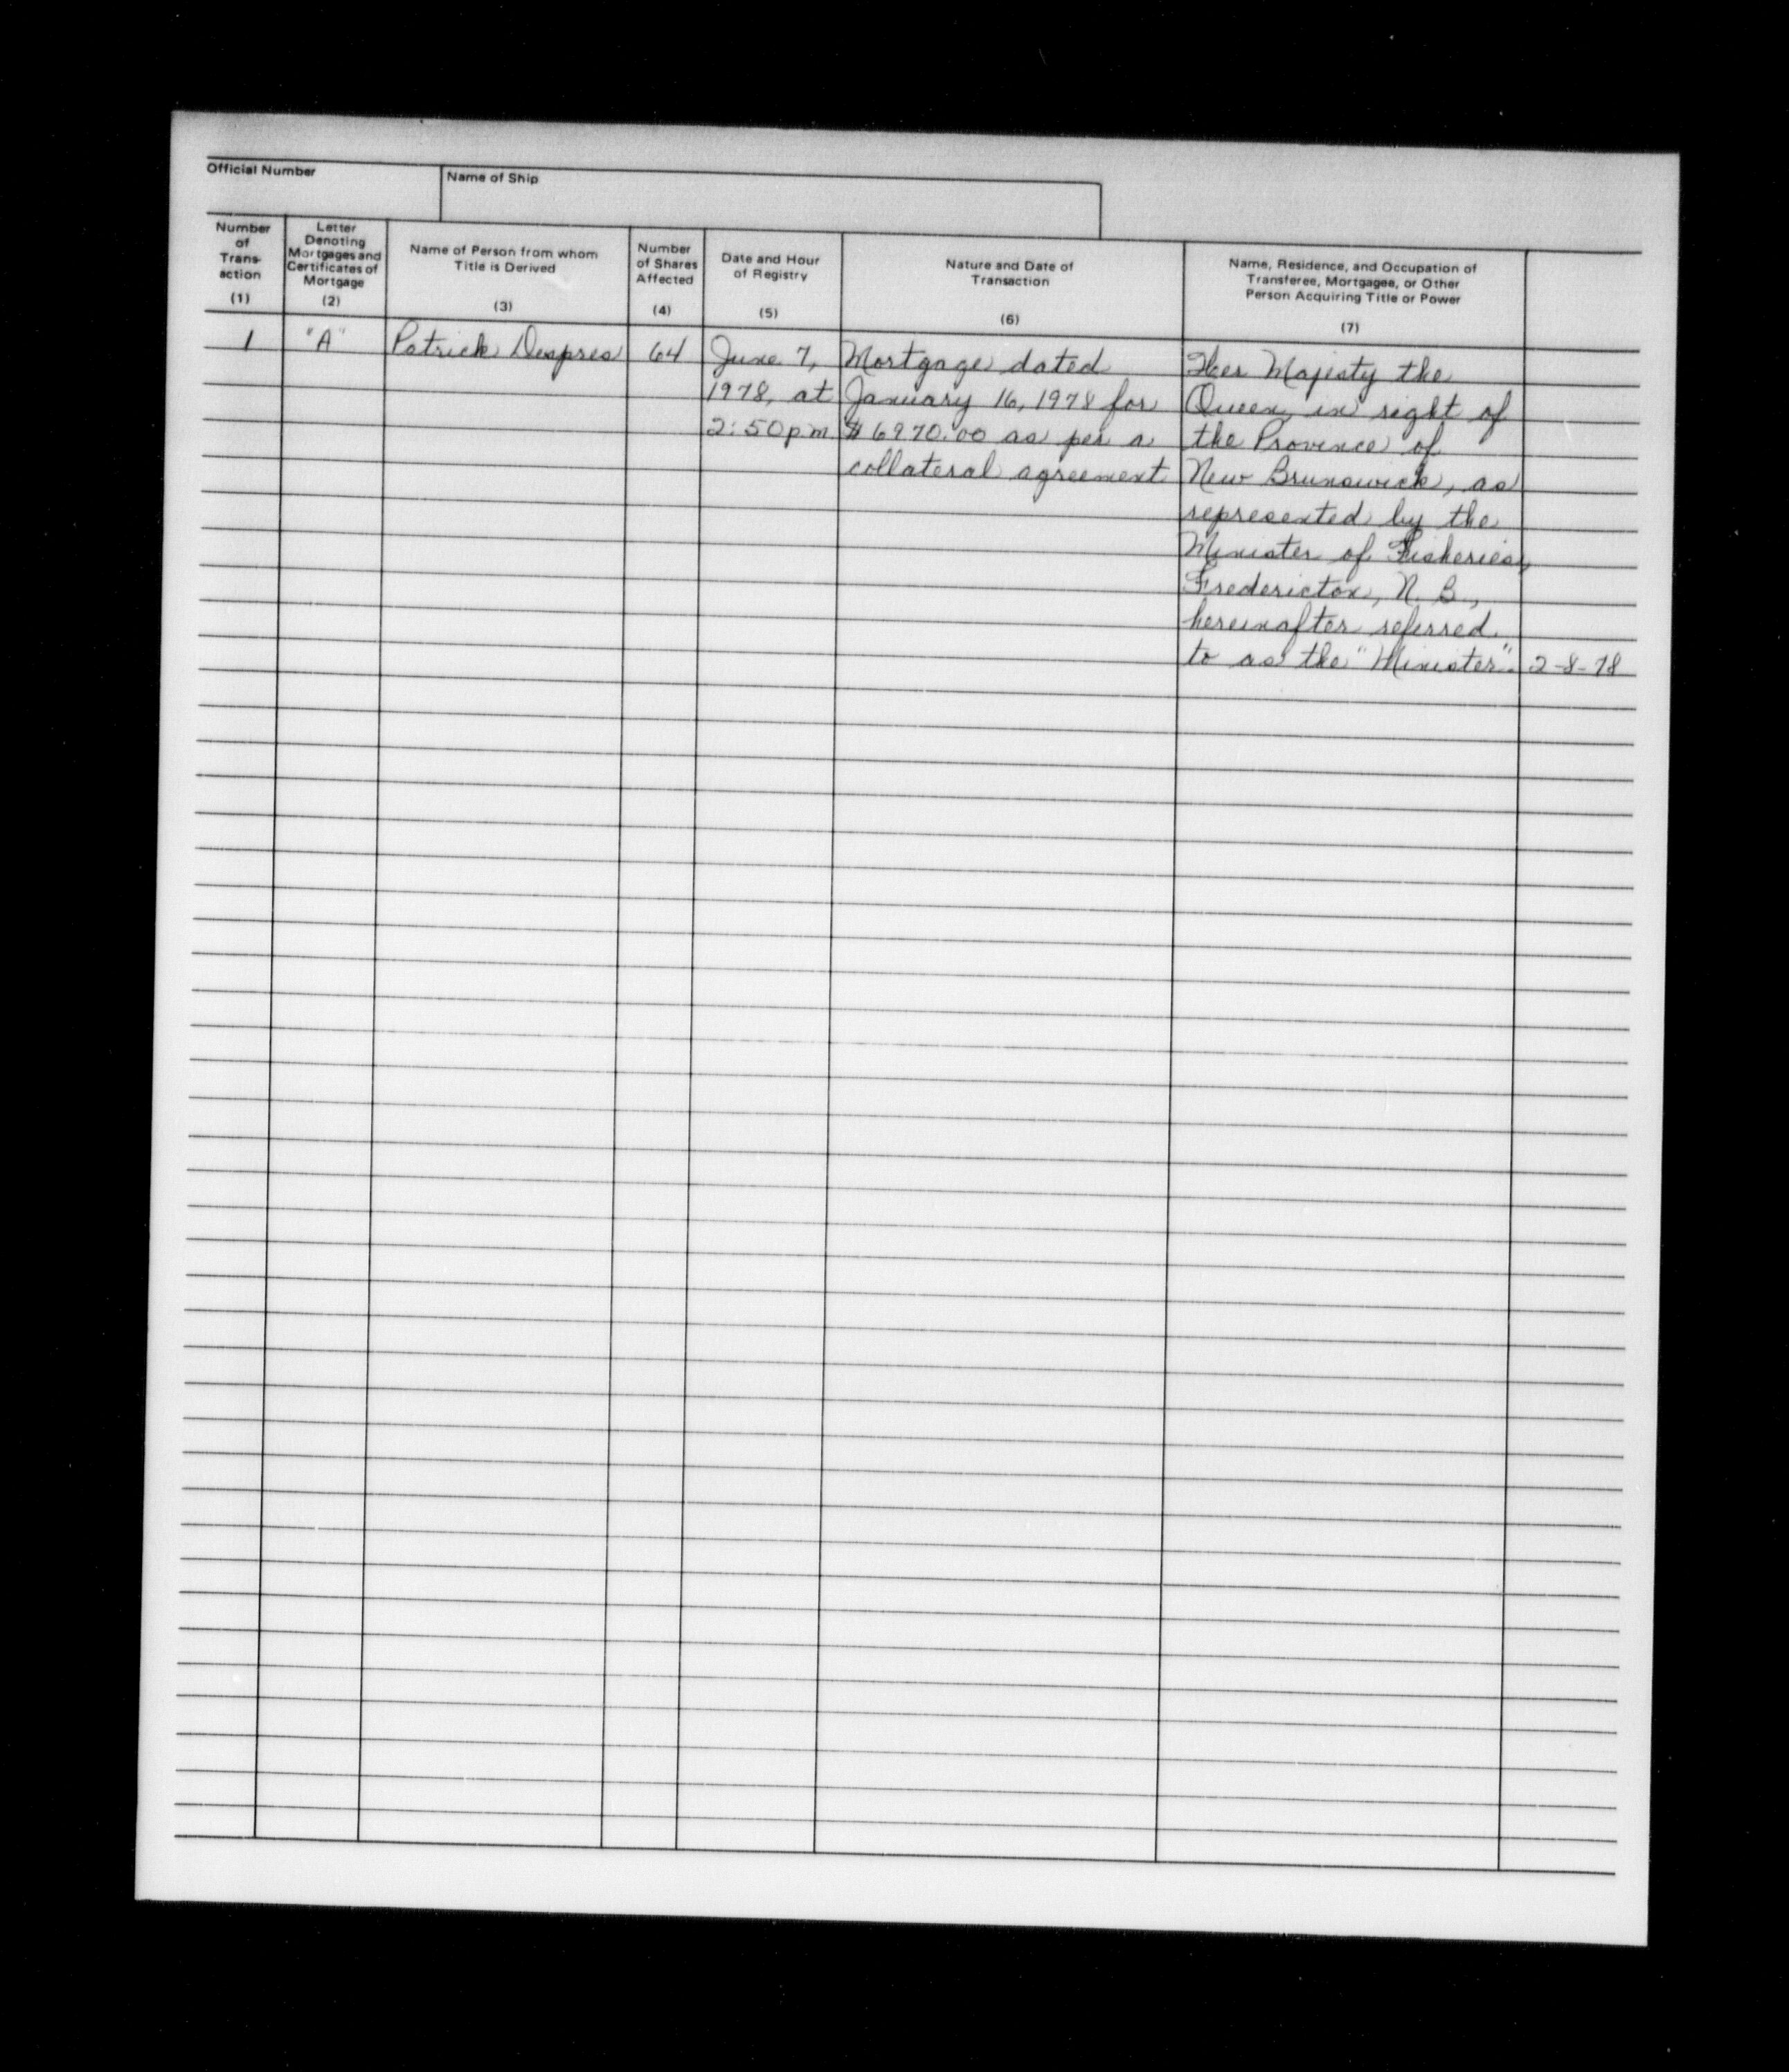 Official Number
Name of Ship
Number of Trans- action (1)
Letter Denoting Mortgages and Certificates of Mortgage (2)
Name of Person from whom Title is Derived (3)
Number of Shares Affected (4)
Date and Hour of Registry (5)
Nature and Date of Transaction (6)
Name, Residence, and Occupation of Transferee, Mortgagee, or Other Person Acquiring Title or Power (7)
1 "A" Patrick Despres 64 June 7, Mortgage dated Her Majesty the
1978, at January 16, 1978 for Queen in right of
2:50 p.m. $6970.00 as per a the Province of
collateral agreement New Brunswick, as
represented by the
Minister of Fisheries,
Fredericton, N. B.,
hereinafter referred
to as the "Minister". 2-8-78